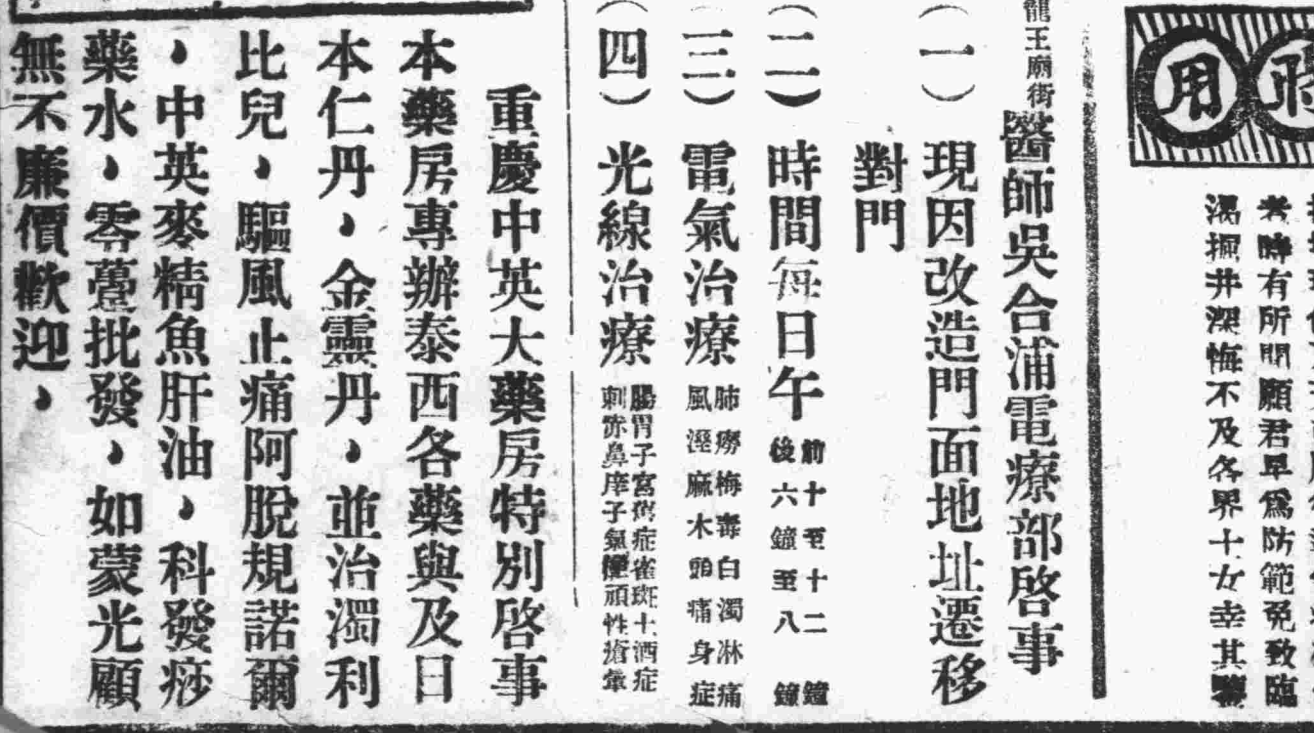 用
耆時有所聞願君早爲防範免致臨
渴掘井深悔不及各界士女幸其鑒
龍王廟街
醫師吳合浦電療部啓事
(一)現因改造門面地址遷移
對門
(二)時間每日午
前十至十二鐘
後六鐘至八鐘
(三)電氣治療
肺癆梅毒白濁淋痛
風溼麻木頭痛身症
(四)光線治療
腸胃子宮症雀斑酒症
刺赤鼻子頑性瘡暈
重慶中英大藥房特別啓事
本藥房專辦泰西各藥與及日
本仁丹，金靈丹，並治濁利
比兒，驅風止痛阿脫規諾爾
，中英麥精魚肝油，科發痧
藥水，零躉批發，如蒙光顧
無不廉價歡迎，